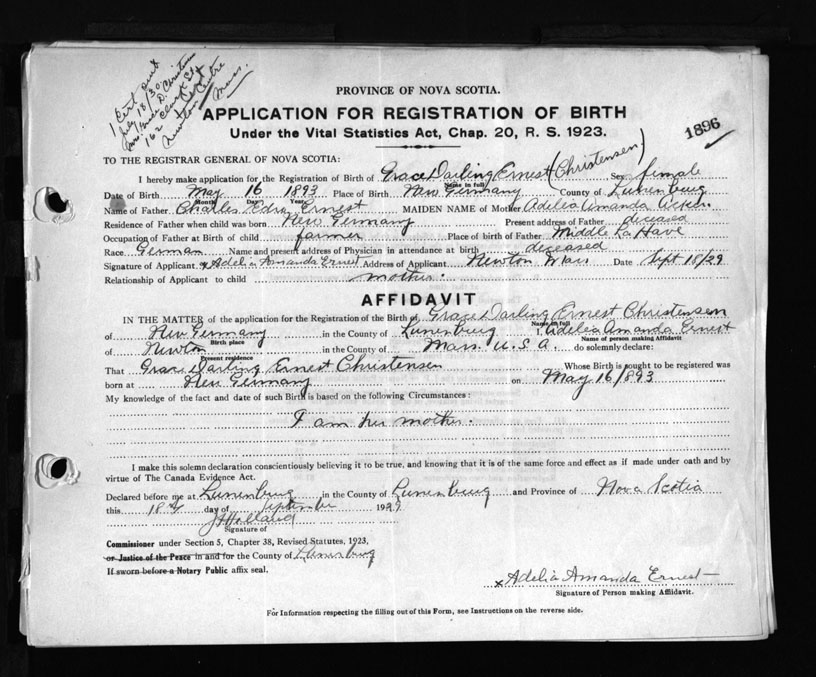 1 Cert sent
July 18/30
Mrs. D. Christensen
162 St
Newton Centre
Mass.
PROVINCE OF NOVA SCOTIA.
APPLICATION FOR REGISTRATION OF BIRTH
Under the Vital Statistics Act, Chap. 20, R. S. 1923.
1896
TO THE REGISTRAR GENERAL OF NOVA SCOTIA:
I hereby make application for the Registration of Birth of Grace Darling Ernest (Christensen) Sex female
Name in full
Date of Birth May 16 1893 Place of Birth New Germany County of Lunenburg
Month Day Year
Name of Father Charles Ernest MAIDEN NAME of Mother Adelia Amanda
Residence of Father when child was born New Germany Present address of Father deceased
Occupation of Father at Birth of child farmer Place of birth of Father Middle La Have
Race German Name and present address of Physician in attendance at birth deceased
Signature of Applicant x Adelia Amanda Ernest Address of Applicant Newton Mass Date Sept 18/29
Relationship of Applicant to child mother.
AFFIDAVIT
IN THE MATTER of the application for the Registration of the Birth of Grace Darling Ernest Christensen
Name in full
of New Germany in the County of Lunenburg I, Adelia Amanda Ernest
Birth place Name of person making Affidavit
of Newton in the County of Mass. U.S.A. do solemnly declare:
Present residence
That Grace Darling Ernest Christensen Whose Birth is sought to be registered was
born at New Germany on May 16/893
My knowledge of the fact and date of such Birth is based on the following Circumstances:
I am her mother.
I make this solemn declaration conscientiously believing it to be true, and knowing that it is of the same force and effect as if made under oath and by
virtue of The Canada Evidence Act.
Declared before me at Lunenburg in the County of Lunenburg and Province of Nova Scotia
this 18th day of September 1929
Holland
Signature of
Commissioner under Section 5, Chapter 38, Revised Statutes, 1923,
or Justice of the Peace in and for the County of Lunenburg
If sworn before a Notary Public affix seal.
x Adelia Amanda Ernest
Signature of Person making Affidavit.
For Information respecting the filling out of this Form, see Instructions on the reverse side.